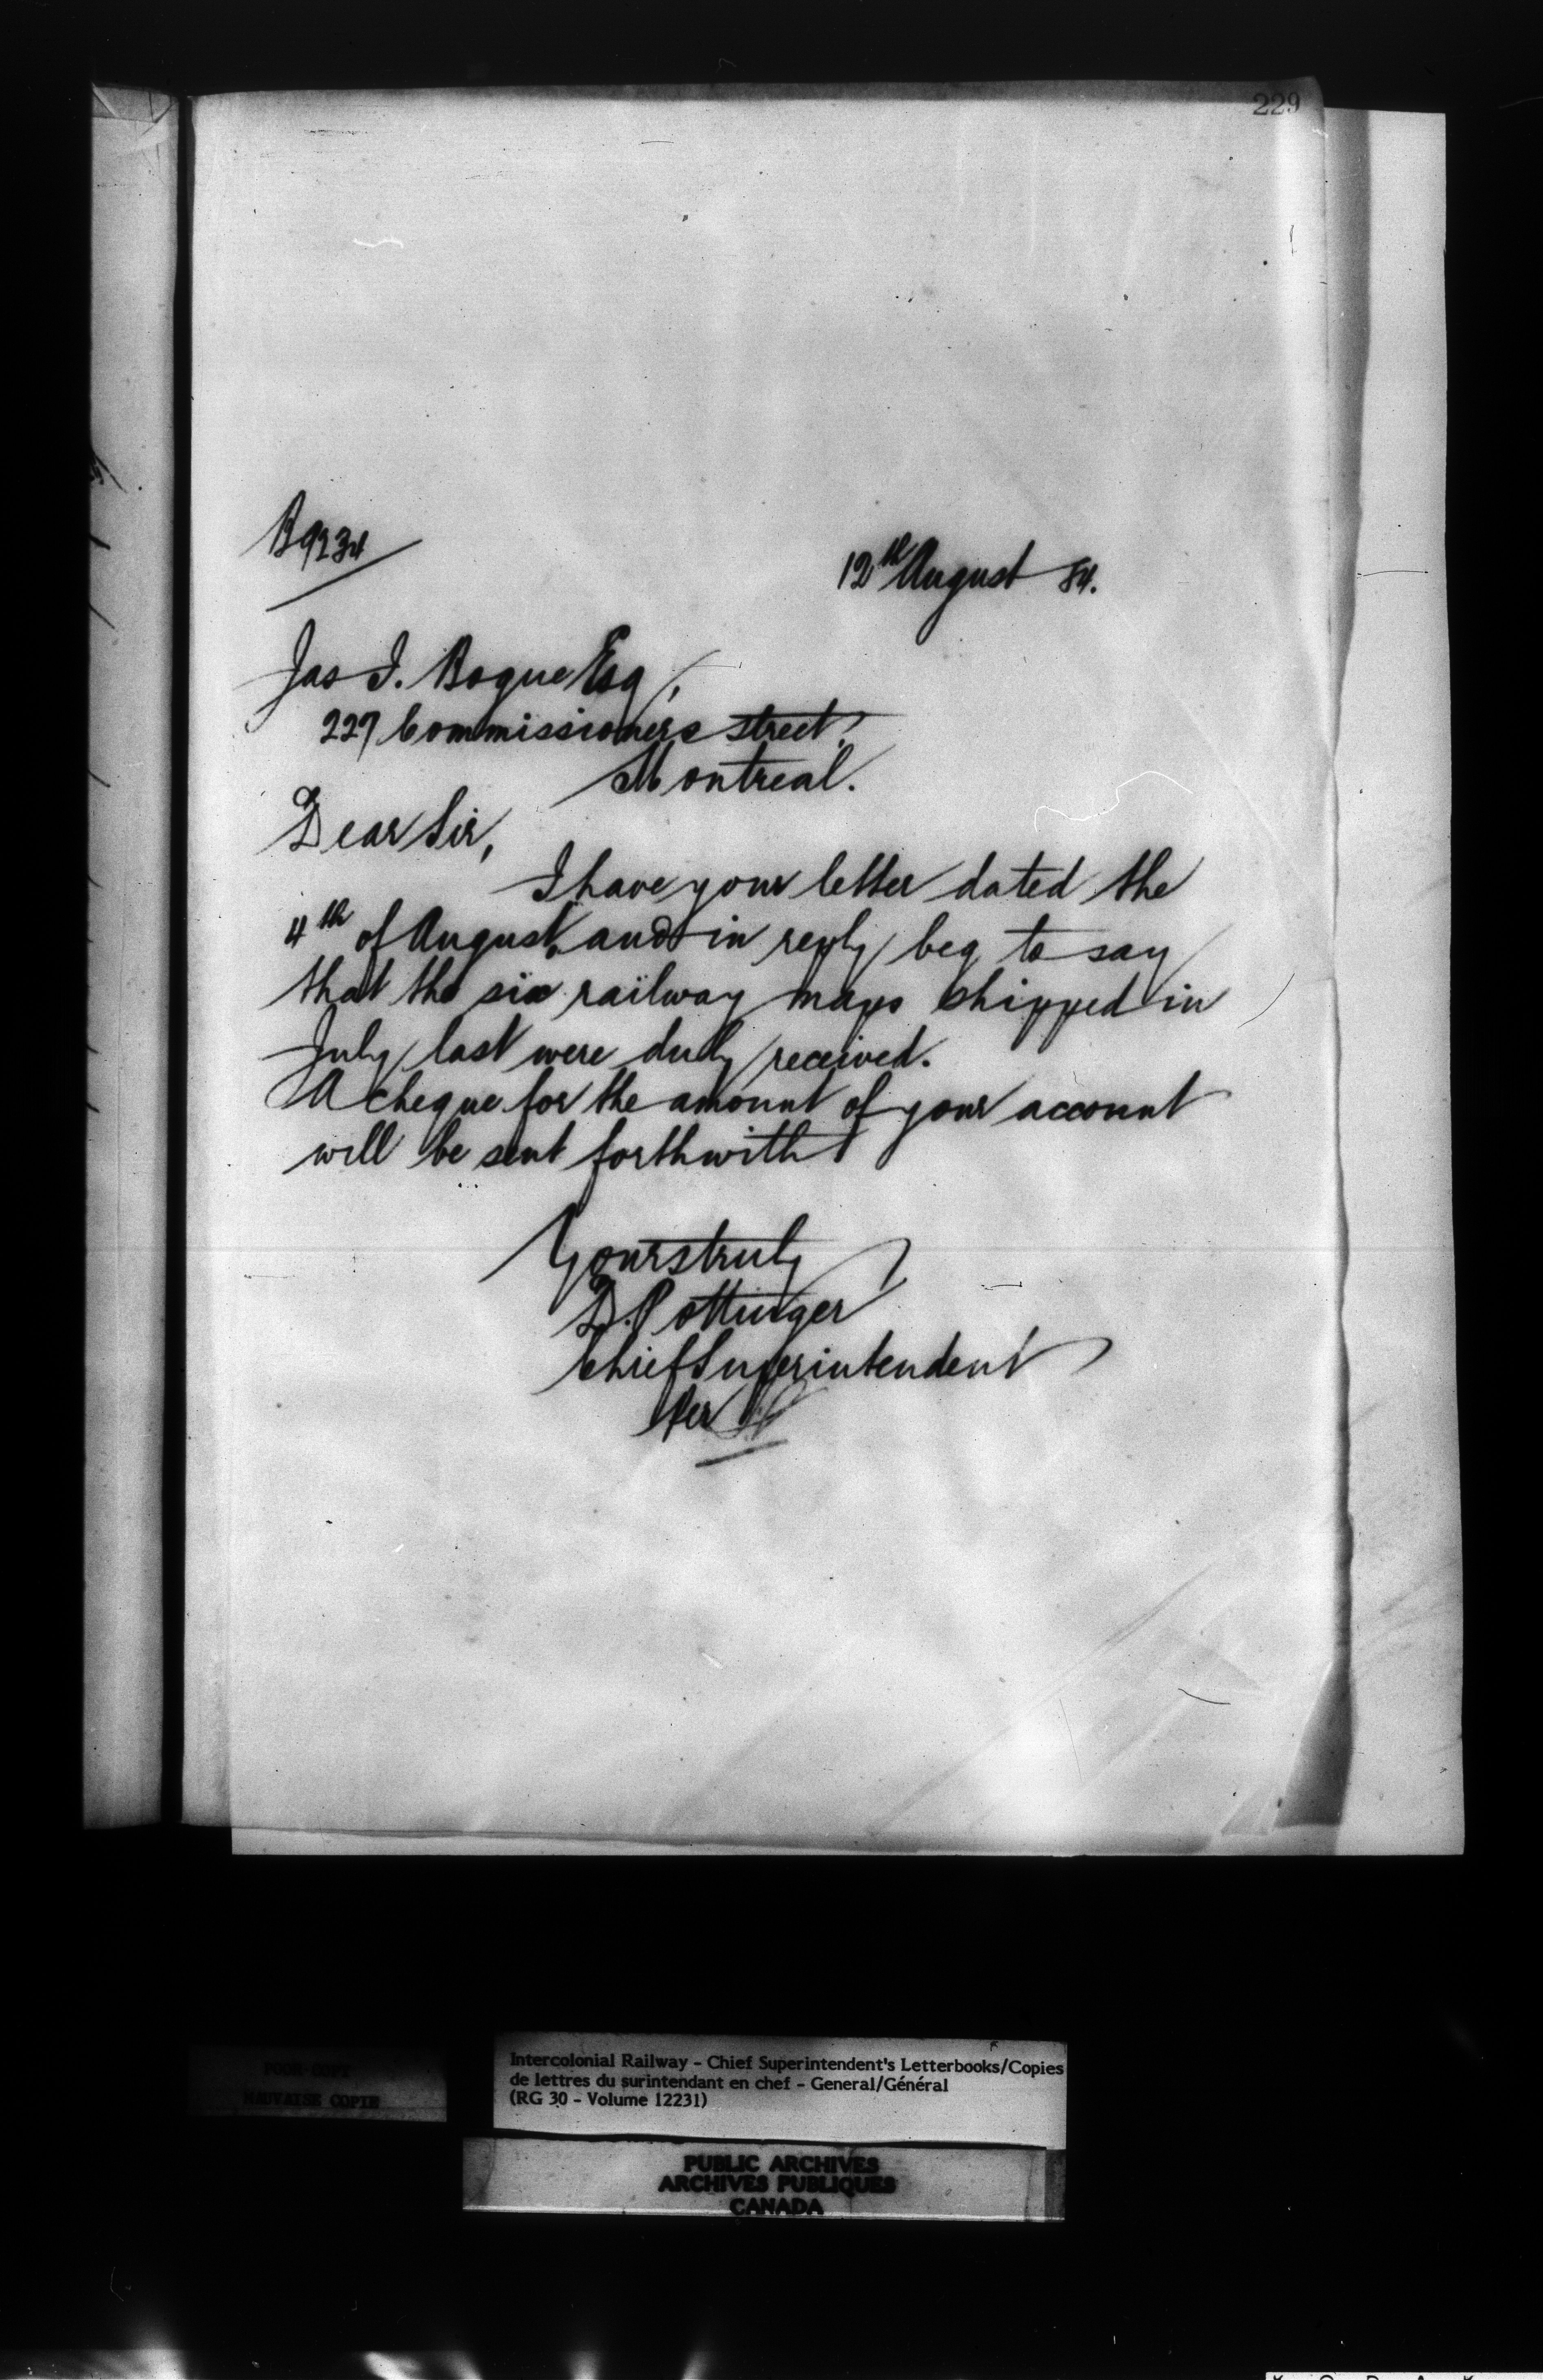 229
B9234
12th August 84.
Jas I. Bogue Esq,
227 Commissioners street,
Montreal.
Dear Sir,
I have your letter dated the
4th of August, and in reply beg to say
that the six railway maps shipped in
July last were duly received.
A cheque for the amount of your account
will be sent forthwith
Yours truly
D. Pottinger
Chief Superintendent
Per
POOR COPY
MAUVAISE COPIE
Intercolonial Railway - Chief Superintendent's Letterbooks/Copies
de lettres du surintendant en chef - General/Général
(RG 30 - Volume 12231)
PUBLIC ARCHIVES
ARCHIVES PUBLIQUES
CANADA